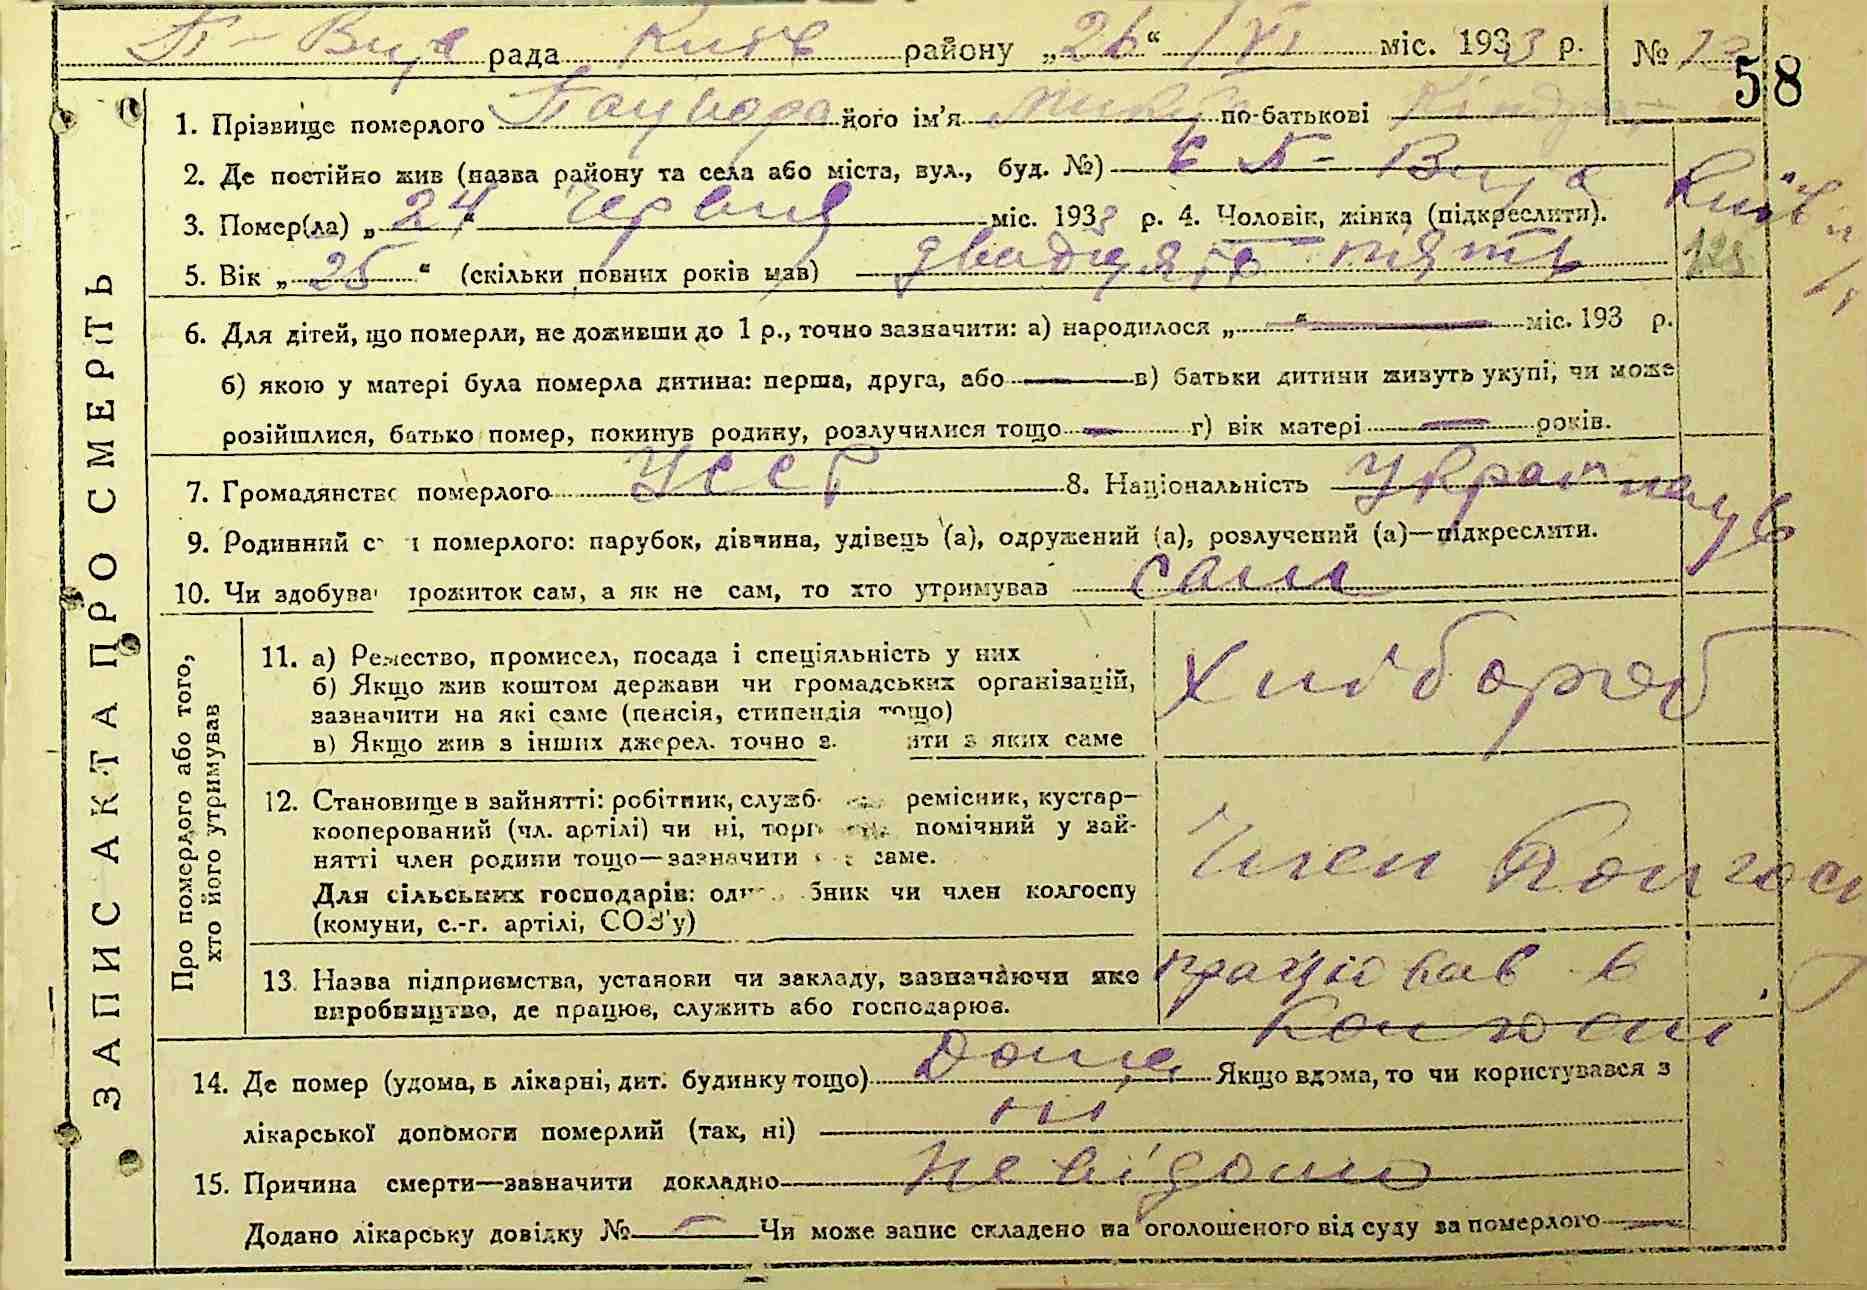 П-Вир рада Київ району „26“ VI міс. 1933 р. №
58
ЗАПИС АКТА ПРО СМЕРТЬ
1. Прізвище померлого його ім'я по-батькові
2. Де постійно жив (назва району та села або міста, вул., буд. №) с П-
3. Помер(ла) „24“ Червня міс. 1933 р. 4. Чоловік, жінка (підкреслити).
5. Вік „25“ (скільки повних років мав) двадцять пять
6. Для дітей, що померли, не доживши до 1 р., точно зазначити: а) народилося „ “ міс. 193 р.
б) якою у матері була померла дитина: перша, друга, або — в) батьки дитини живуть укупі, чи може
розійшлися, батько помер, покинув родину, розлучилися тощо — г) вік матері — років.
7. Громадянство померлого УССР 8. Національність Українець
9. Родинний с і померлого: парубок, дівчина, удівець (а), одружений (а), розлучений (а)—підкреслити.
10. Чи здобува прожиток сам, а як не сам, то хто утримував сам
Про померлого або того,
хто його утримував
11. а) Ремество, промисел, посада і спеціяльність у них
б) Якщо жив коштом держави чи громадських організацій,
зазначити на які саме (пенсія, стипендія тощо)
в) Якщо жив з інших джерел, точно з ити з яких саме
Хлібороб
12. Становище в зайнятті: робітник, служб ремісник, кустар-
кооперований (чл. артілі) чи ні, торг помічний у зай-
нятті член родини тощо—зазначити саме.
Для сільських господарів: од бник чи член колгоспу
(комуни, с.-г. артілі, СОЗ'у)
Член Колгосп
13. Назва підприємства, установи чи закладу, зазначаючи яке
виробництво, де працює, служить або господарює.
працював в
Колгоспі
14. Де помер (удома, в лікарні, дит. будинку тощо) Дома Якщо вдома, то чи користувався з
лікарської допомоги померлий (так, ні) ні
15. Причина смерти—зазначити докладно невідомо
Додано лікарську довідку № — Чи може запис складено на оголошеного від суду за померлого —